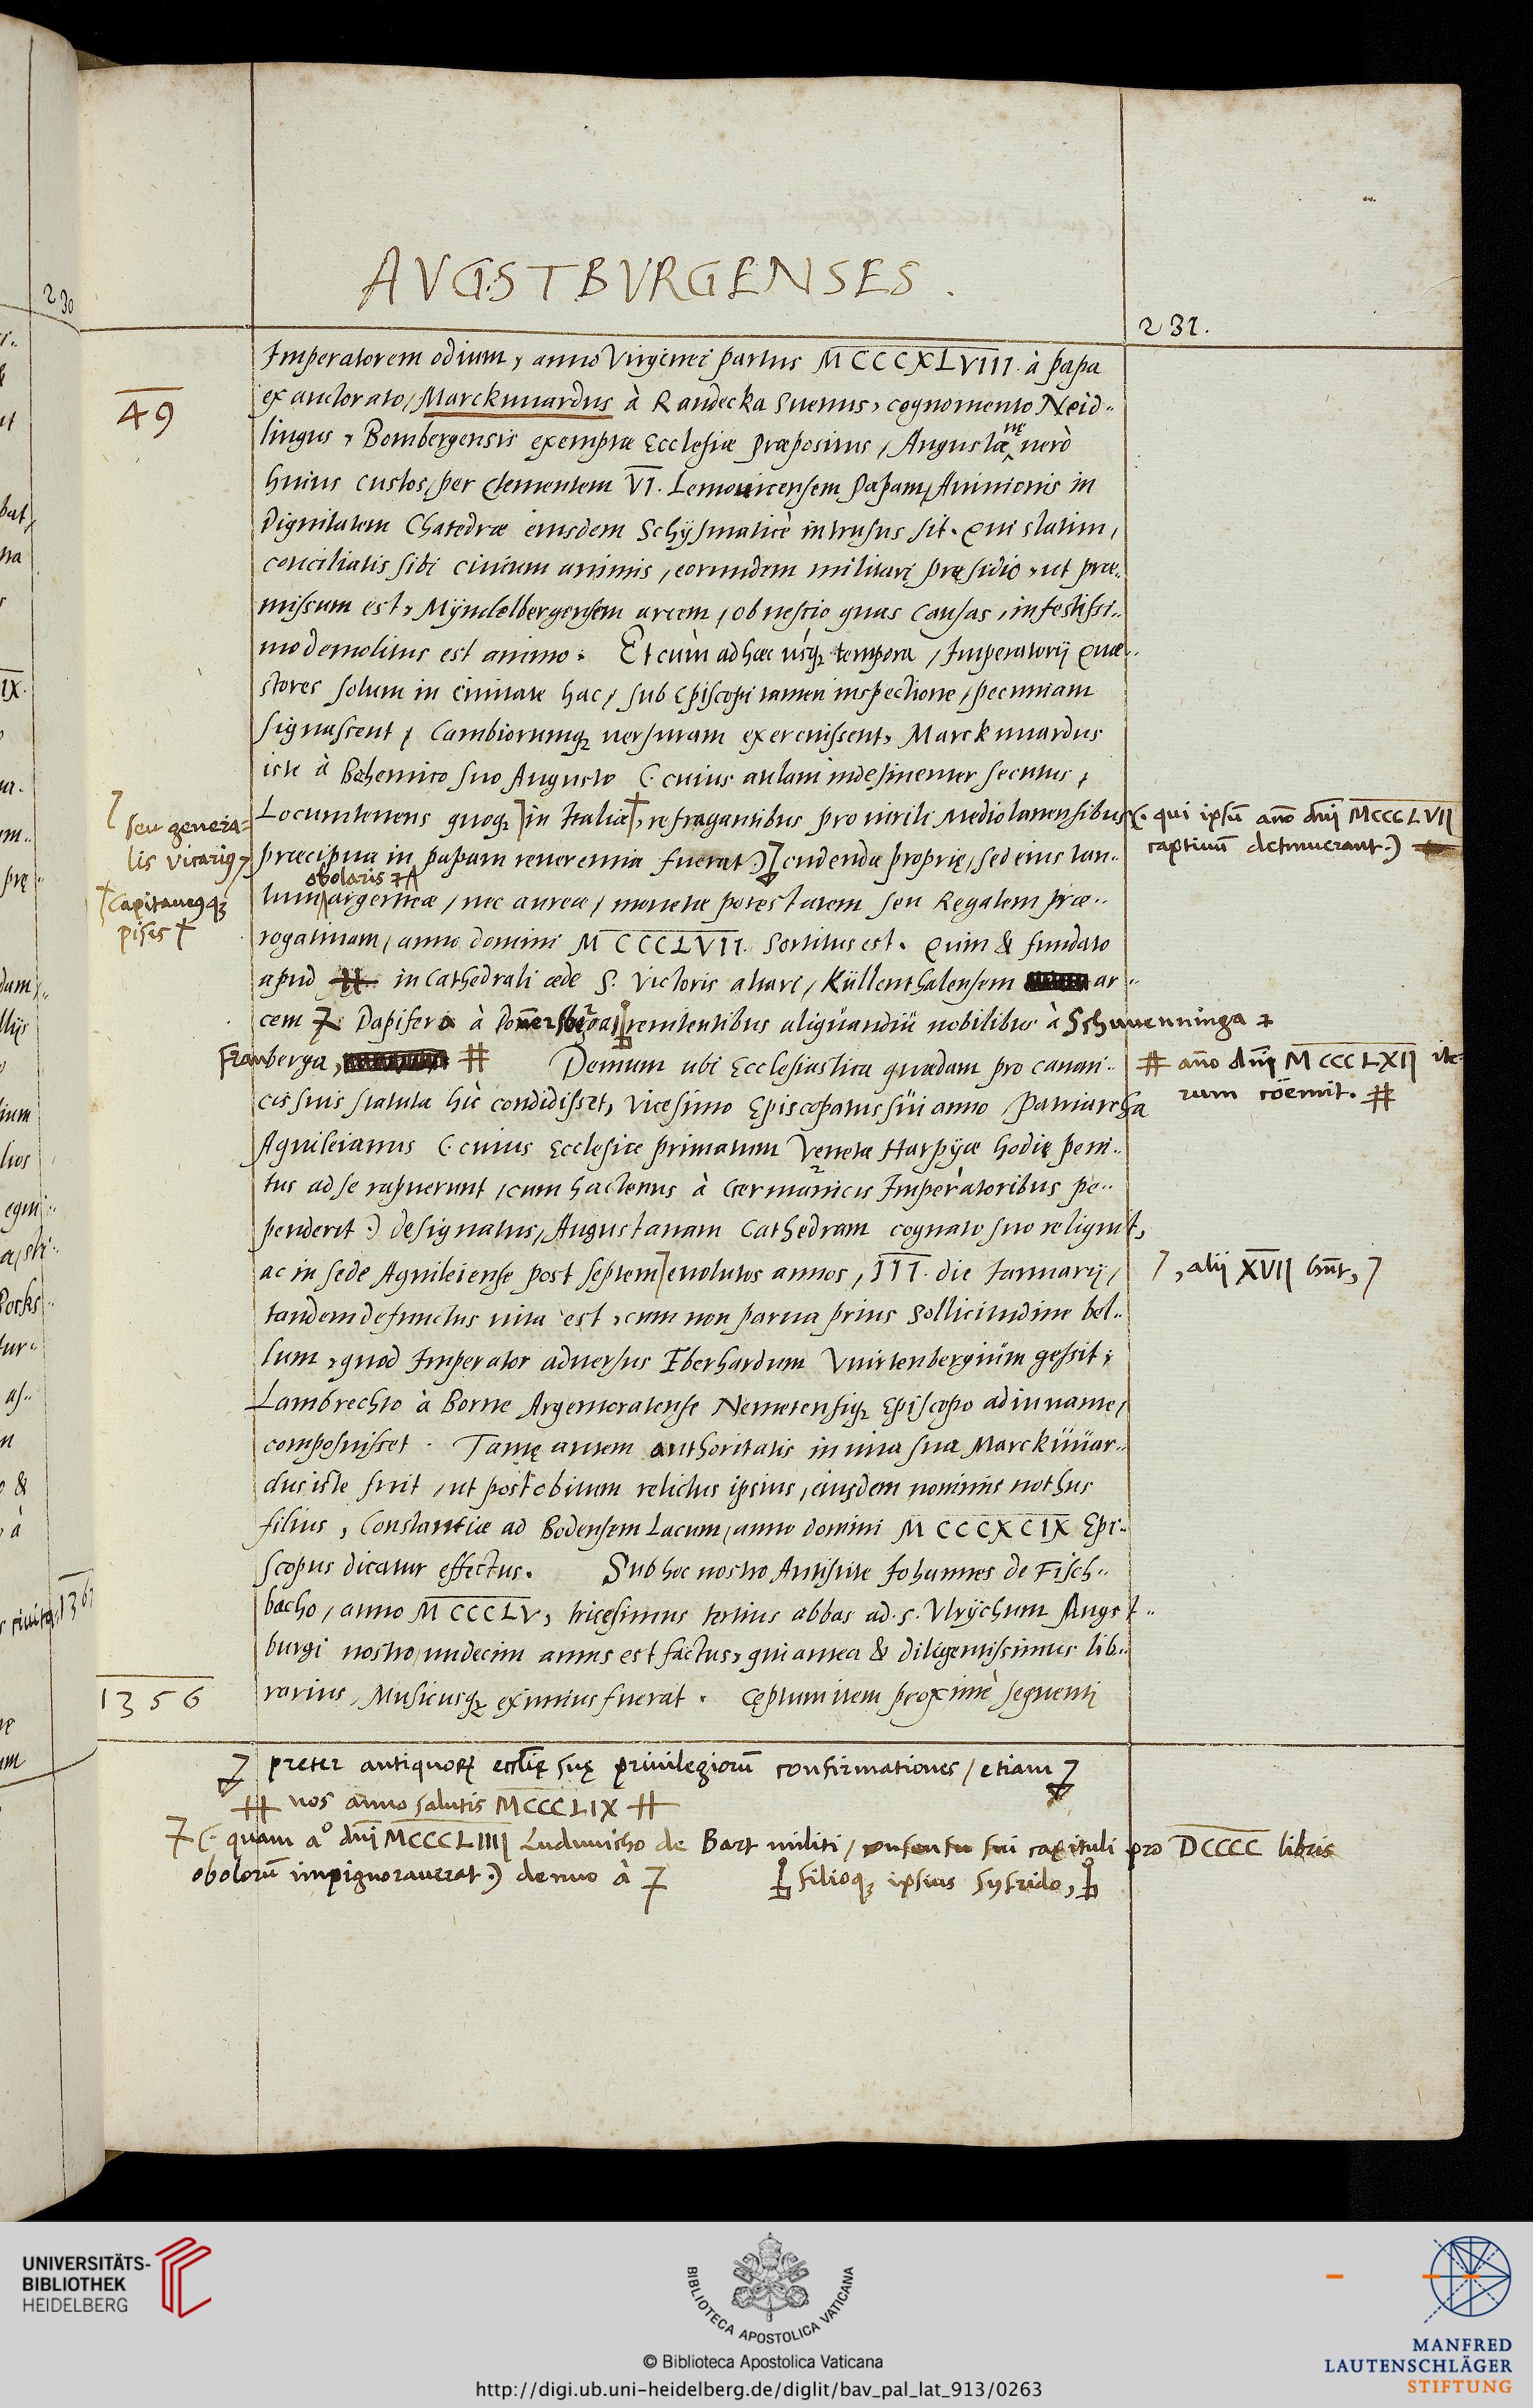 AVGSTBVRGENSES.
231.
Imperatorem odium, anno Virginei partus MCCCXLVIII. à papa
49
exauctorato, Marckuuardus à Randecka Sueuus, cognomento Neid..
lingus, Bombergensis exemptæ Ecclesiæ præpositus, Augustæ uerò
huius custos, per Clementem VI. Lemouicensem Papam, Auinionis in
dignitatem Chatedræ eiusdem Schÿsmaticè intrusus sit. Qui statim,
conciliatis sibi ciuium animis, eorundem militari pręsidio, ut præ..
missum est, Mÿndelbergensem arcem, ob nescio quas causas, infestissi..
mo demolitus est animo. Et cùm ad hæc usq; tempora, Imperatorij quæ..
stores solum in ciuitate hac, sub Episcopi tamen inspectione, pecuniam
signassent, Cambiorumq; uersuram exercuissent, Marckuuardus
iste à Bohemico suo Augusto (. cuius aulam indesinenter secutus,
Locumtenens quoq; in Italia, refragantibus pro uirili Mediolanensibus
seu genera=
lis vicarius
(. qui ipsũ año dñi MCCCLVII
captiuũ detinuerant.)
præcipua in papam reuerentia fuerat.) cudendæ proprię, sed eius tan..
obolaris
Capitaneusq;
pisis
tum argenteæ, nec aureæ, monetæ potestatem seu Regalem præ..
rogatiuam, anno domini MCCCLVII. sortitus est. Quin & fundato
apud in Cathedrali æde S. Victoris altari, Küllenthalensem ar..
cem Dapifero à remtentibus aliquandiu nobilibus à Schuuenninga
Frauberga, Demum ubi Ecclesiastica quædam pro canoni..
año dñi MCCCLXII ite=
rum coëmit.
cis suis statuta hîc condidisset, vicesimo Episcopatus sui anno, Patriarcha
Aquileianus (. cuius Ecclesiæ primatum Venetæ Harpÿæ hodię peni..
tus ad se rapuerunt, cum hactenus à Germanicis Imperatoribus pe..
penderit.) designatus, Augustanam Cathedram cognato suo reliquit,
ac in sede Aquileiense post septem euolutos annos, III. die Januarij,
, alij XVII hñt,
tandem defunctus uita est, cum non parua prius sollicitudine bel..
lum, quod Imperator aduersus Eberhardum Vuirtenbergium gessit,
Lambrechto à Borne Argentoratense Nemetensiq; Episcopo adiuuante,
composuisset. Tantę autem authoritatis in uita sua Marckuuar..
dus iste fuit, ut post obitum relictus ipsius, eiusdem nominis nothus
filius, Constantiæ ad Bodensem Lacum, anno domini MCCCXCIX Epi..
scopus dicatur effectus. Sub hoc nostro Antistite Johannes de Fisch..
bacho, anno MCCCLV, tricesimus tertius abbas ad S. Vlrÿchum Augst..
burgi nostro, undecim annis est factus, qui antea & diligentissimus lib..
1356
rarius, Musicusq; eximius fuerat. Cęptum item proximè sequenti
preter antiquorũ eccłię suę priuilegiorũ confirmationes, etiam
nos anno salutis MCCCLIX
(. quam a° dñi MCCCLIIII Luduuicho de Bart militi, consensu sui capituli pro DCCCC libris
obolorũ impignorauerat.) denuo à
filioq; ipsius Syfrido,
230
1367
UNIVERSITÄTS-
BIBLIOTHEK
HEIDELBERG
BIBLIOTECA APOSTOLICA VATICANA
© Biblioteca Apostolica Vaticana
http://digi.ub.uni-heidelberg.de/diglit/bav_pal_lat_913/0263
MANFRED
LAUTENSCHLÄGER
STIFTUNG